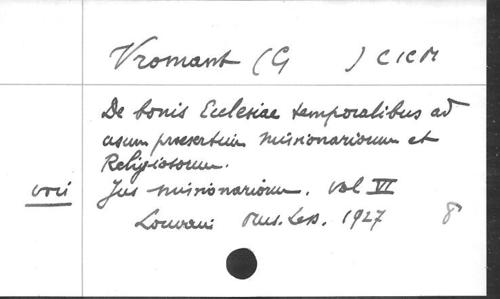 Vromant (G ) CICM
De bonis Ecclesiae temporalibus ad
usum praesertim missionariorum et
Religiosorum.
voir Jus missionariorum. Vol VI
Louvain Mus. Less. 1927 8°